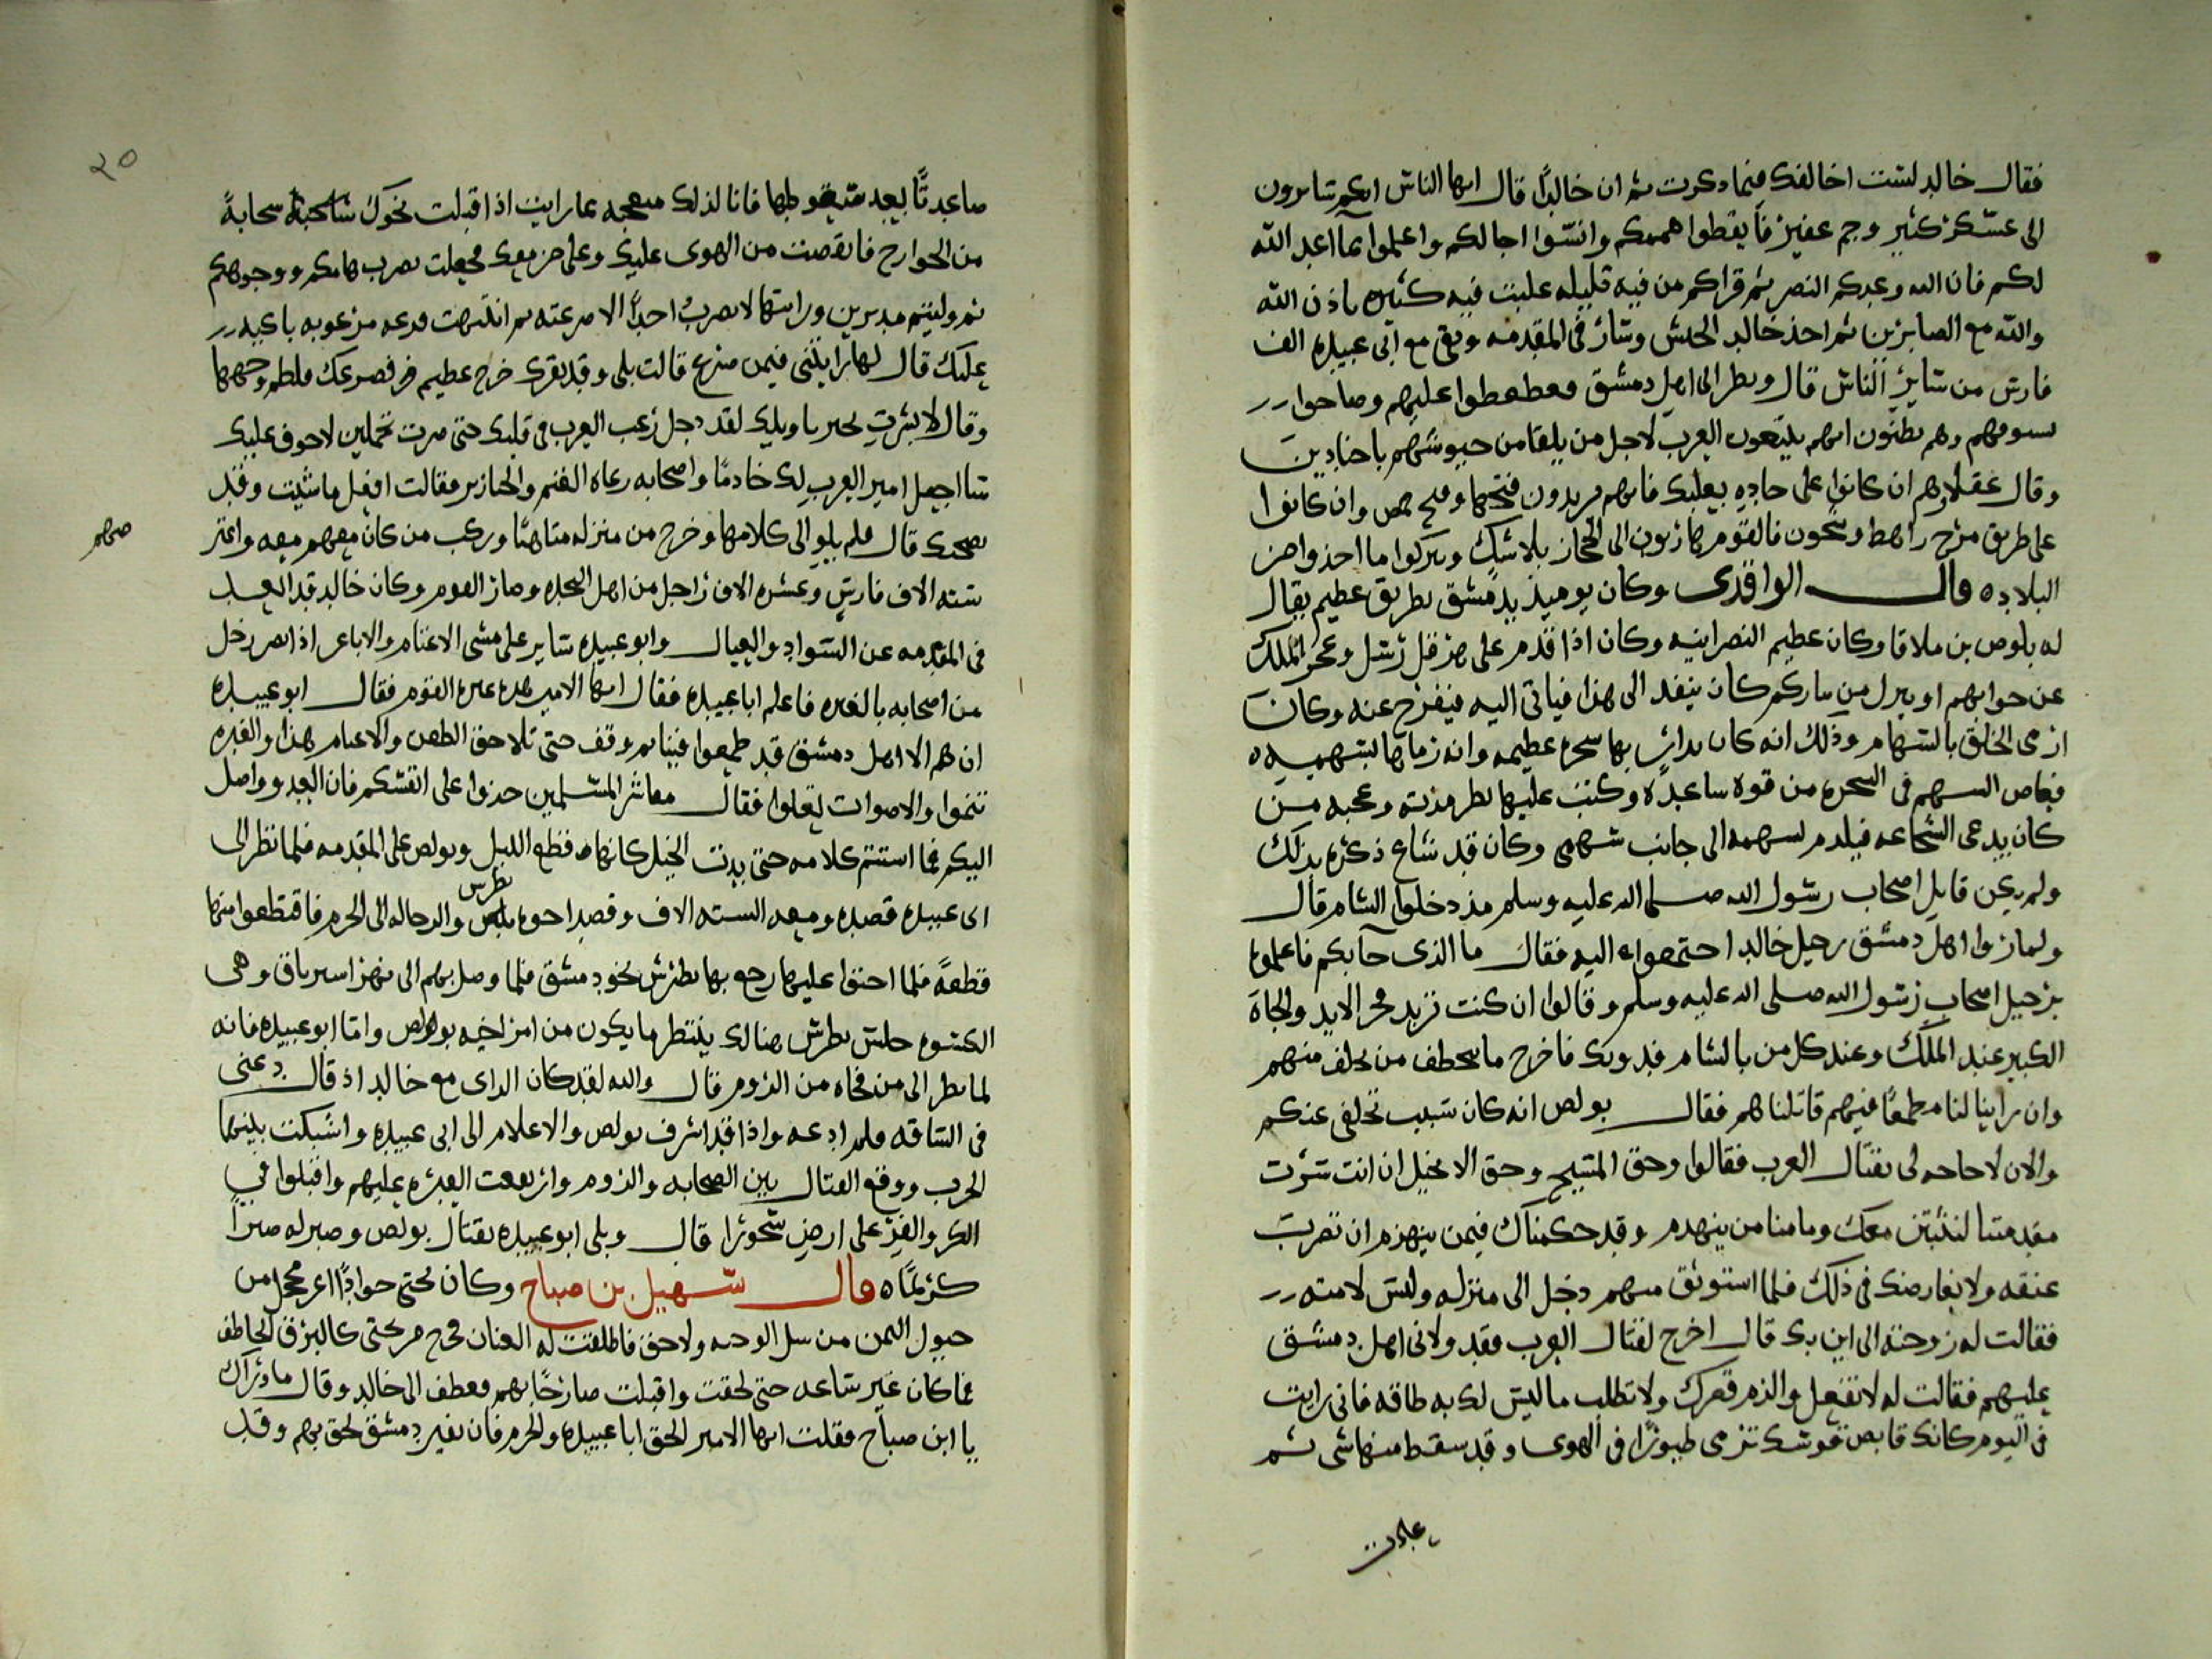 فقال خالد لست اخالفك فيما ذكرت ثم ان خالدًا قال ايها الناس انكم سايرون
الى عسكر كثير وجم غفير فأيقظوا هممكم وانسوا اجالكم واعلموا بما اعد الله
لكم فان الله وعدكم النصر ثم قراكم من فيه قليله غلبت فيه كثيره باذن الله
والله مع الصابرين ثم اخذ خالد الجيش وسار في المقدمه وبقى مع أبى عبيده الف
فارس من ساير الناس قال ونظر الى اهل دمشق فعطعطوا عليهم وصاحوا
بسيوفهم وهم يظنون انهم يتبعون العرب لاجل من يلقا من جيوشهم باجنادين
وقال عقلاوهم ان كانوا على جاده بعلبك فانهم يريدون فتحها وفتح حمص وان كانوا
على طريق مرج راهط وسحون فالقوم هاربون الى الحجاز بلا شك ويتركوا ما اخذوا من
البلاد ه قال الواقدى وكان يوميذ بدمشق بطريق عظيم يقال
له بلوص بن ملاقا وكان عظيم النصرانيه وكان اذا قدم على هرقل رسل وعجز الملك
عن جوابهم او ينزل من كان ينفد الى هذا فياتى اليه فيفرج عنه وكان
ارمى الخلق بالسهام وذلك انه كان بدار بها شجره عظيمه وانه رماها بسهميه ه
فغاص السهم في الشجره من قوه ساعده وكتب عليها بطر مدينه وعجبه من
كان يدعى الشجاعه فيلدم بسهمه الى جانب سهمى وكان قد شاع ذكره بذلك
ولم يكن قابل اصحاب رسول الله صلى الله عليه وسلم مذ دخلوا الشام قال
ولما راوا اهل دمشق رحيل خالد اجتمعوا اليه فقال ما الذى جآبكم فاعلموه
برحيل اصحاب رسول الله صلى الله عليه وسلم وقالوا ان كنت تريد فخر الابد والجاه
الكبير عند الملك وعند كل من بالشام فدونك فاخرج ما نخطف من تخلف منهم
وان راينا لنا مطمعًا فيهم قاتلناهم فقال بولص انه كان سبب تخلفى عنكم
والان لا حاجه لى بقتال العرب فقالوا وحق المسيح وحق الانجيل ان انت سرت
مقدمتنا لنثبتن معك وما منا من ينهدم وقد حكمناك فيمن ينهزم ان تضرب
عنقه ولا يعارضك في ذلك فلما استوثق منهم دخل الى منزله ولبس لامته
فقالت له زوجته الى اين بك قال اخرج لقتال العرب فقد ولانى اهل دمشق
عليهم فقالت له لا تفعل والزم قصرك ولا تطلب ما ليس لك به طاقه فانى رايت
في اليوم كانك قابض قوسك ترمى طيورًا في الهوى وقد سقط منها شى ثم
عادت
٢٥
صاعدتًا بعد سقوطها فانا لذلك متعجبه بما رايت اذ اقبلت نحوك سحابةً
من الجوارح فانقضت من الهوى عليك وعلى من معك فجعلت تضرب هامكم ووجوهكم
ثم وليتم مدبرين ورايتها لا تضرب احدًا الا صرعته ثم انتبهت فزعه مرعوبه باكيه
عليك قال لها رايتنى فيمن صرع قالت بلى وقد بقرك خرج عظيم فصرعك فلطم وجهها
وقال لا بشرت بخير يا ويلك لقد دخل رعب العرب في قلبك حتى صرت تحملين لا خوف عليك
سا اجعل امير العرب لك خادمًا واصحابه رعاه الغنم والخنازير فقالت افعل ما شيت وقد
نصحتك قال فلم يلو الى كلامها وخرج من منزله متاهبًا وركب من كان معهم معه واعتبر
منهم
سته الاف فارس وعشره الاف راجل من اهل النجده وصار القوم وكان خالد قد ابعد
فى المقدمه عن السواد والعيال وابو عبيده ساير على مشى الاغنام والاباعر اذ ابصر رجل
من اصحابه بالغبره فاعلم ابا عبيده فقال ايها الامير هذه غبره القوم فقال ابو عبيده
ان هم الا اهل دمشق قد طمعوا فينا ثم وقف حتى تلاحق الظعن والاغنام هذا والغبره
تنموا والاصوات تعلوا فقال معاشر المسلمين خذوا على انفسكم فان العدو واصل
اليكم فما استتم كلامه حتى بدت الخيل كانها قطع الليل وبولص على المقدمه فلما نظر الى
ابى عبيده قصده ومعه السته الاف وقصد اخوه بطرس والرجاله الى الحرم فاقتطعوا منها
قطعهً فلما احتوا عليها رجع بها بطرس نحو دمشق فلما وصل بهم الى نهر استرياق وهى
الكسوه جلس بطرس هنالك ينتظر ما يكون من امر اخيه بولص واما ابو عبيده فانه
لما نظر الى من فجاه من الروم قال والله لقد كان الراى مع خالد اذ قال دعنى
فى الساقه فلم ادعه واذا قد اشرف بولص والاعلام الى ابى عبيده واشبكت بينهما
الحرب ووقع القتال بين الصحابه والروم وارتفعت الغبره عليهم واقبلوا في
الكر والفر على ارض سحورا قال وبلى ابو عبيده بقتال بولص وصبر له صبرًا
كريمًا ه قال سهيل بن صباح وكان تحتى جوادًا اغر محجل من
خيول اليمن ولا حق فاطلقت له العنان فخرج من تحتى كالبرق الخاطف
فما كان غير ساعه حتى لحقت واقبلت صارخًا بهم فعطف الى خالد وقال ما وراك
يا ابن صباح فقلت ايها الامير الحق ابا عبيده والحرم فان نفير دمشق لحق بهم وقد